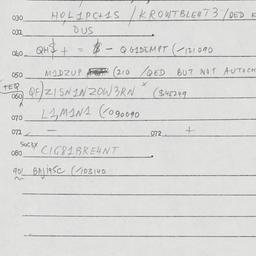 030 HOL1PC+1S / KROWTBLE4T3 / QED
031 DUS
040 QH$ + = $ - QG1DEMPT (/121090
050 M1DZUP (210 /QED BUT NOT AUTOCH
060 QF)Z1SN1NZOW3RN x (345249
070 L1,M1N1 (/090090
071 — 072 +
080 C1G81BRE4NT
90/ BAJ145C (/103140